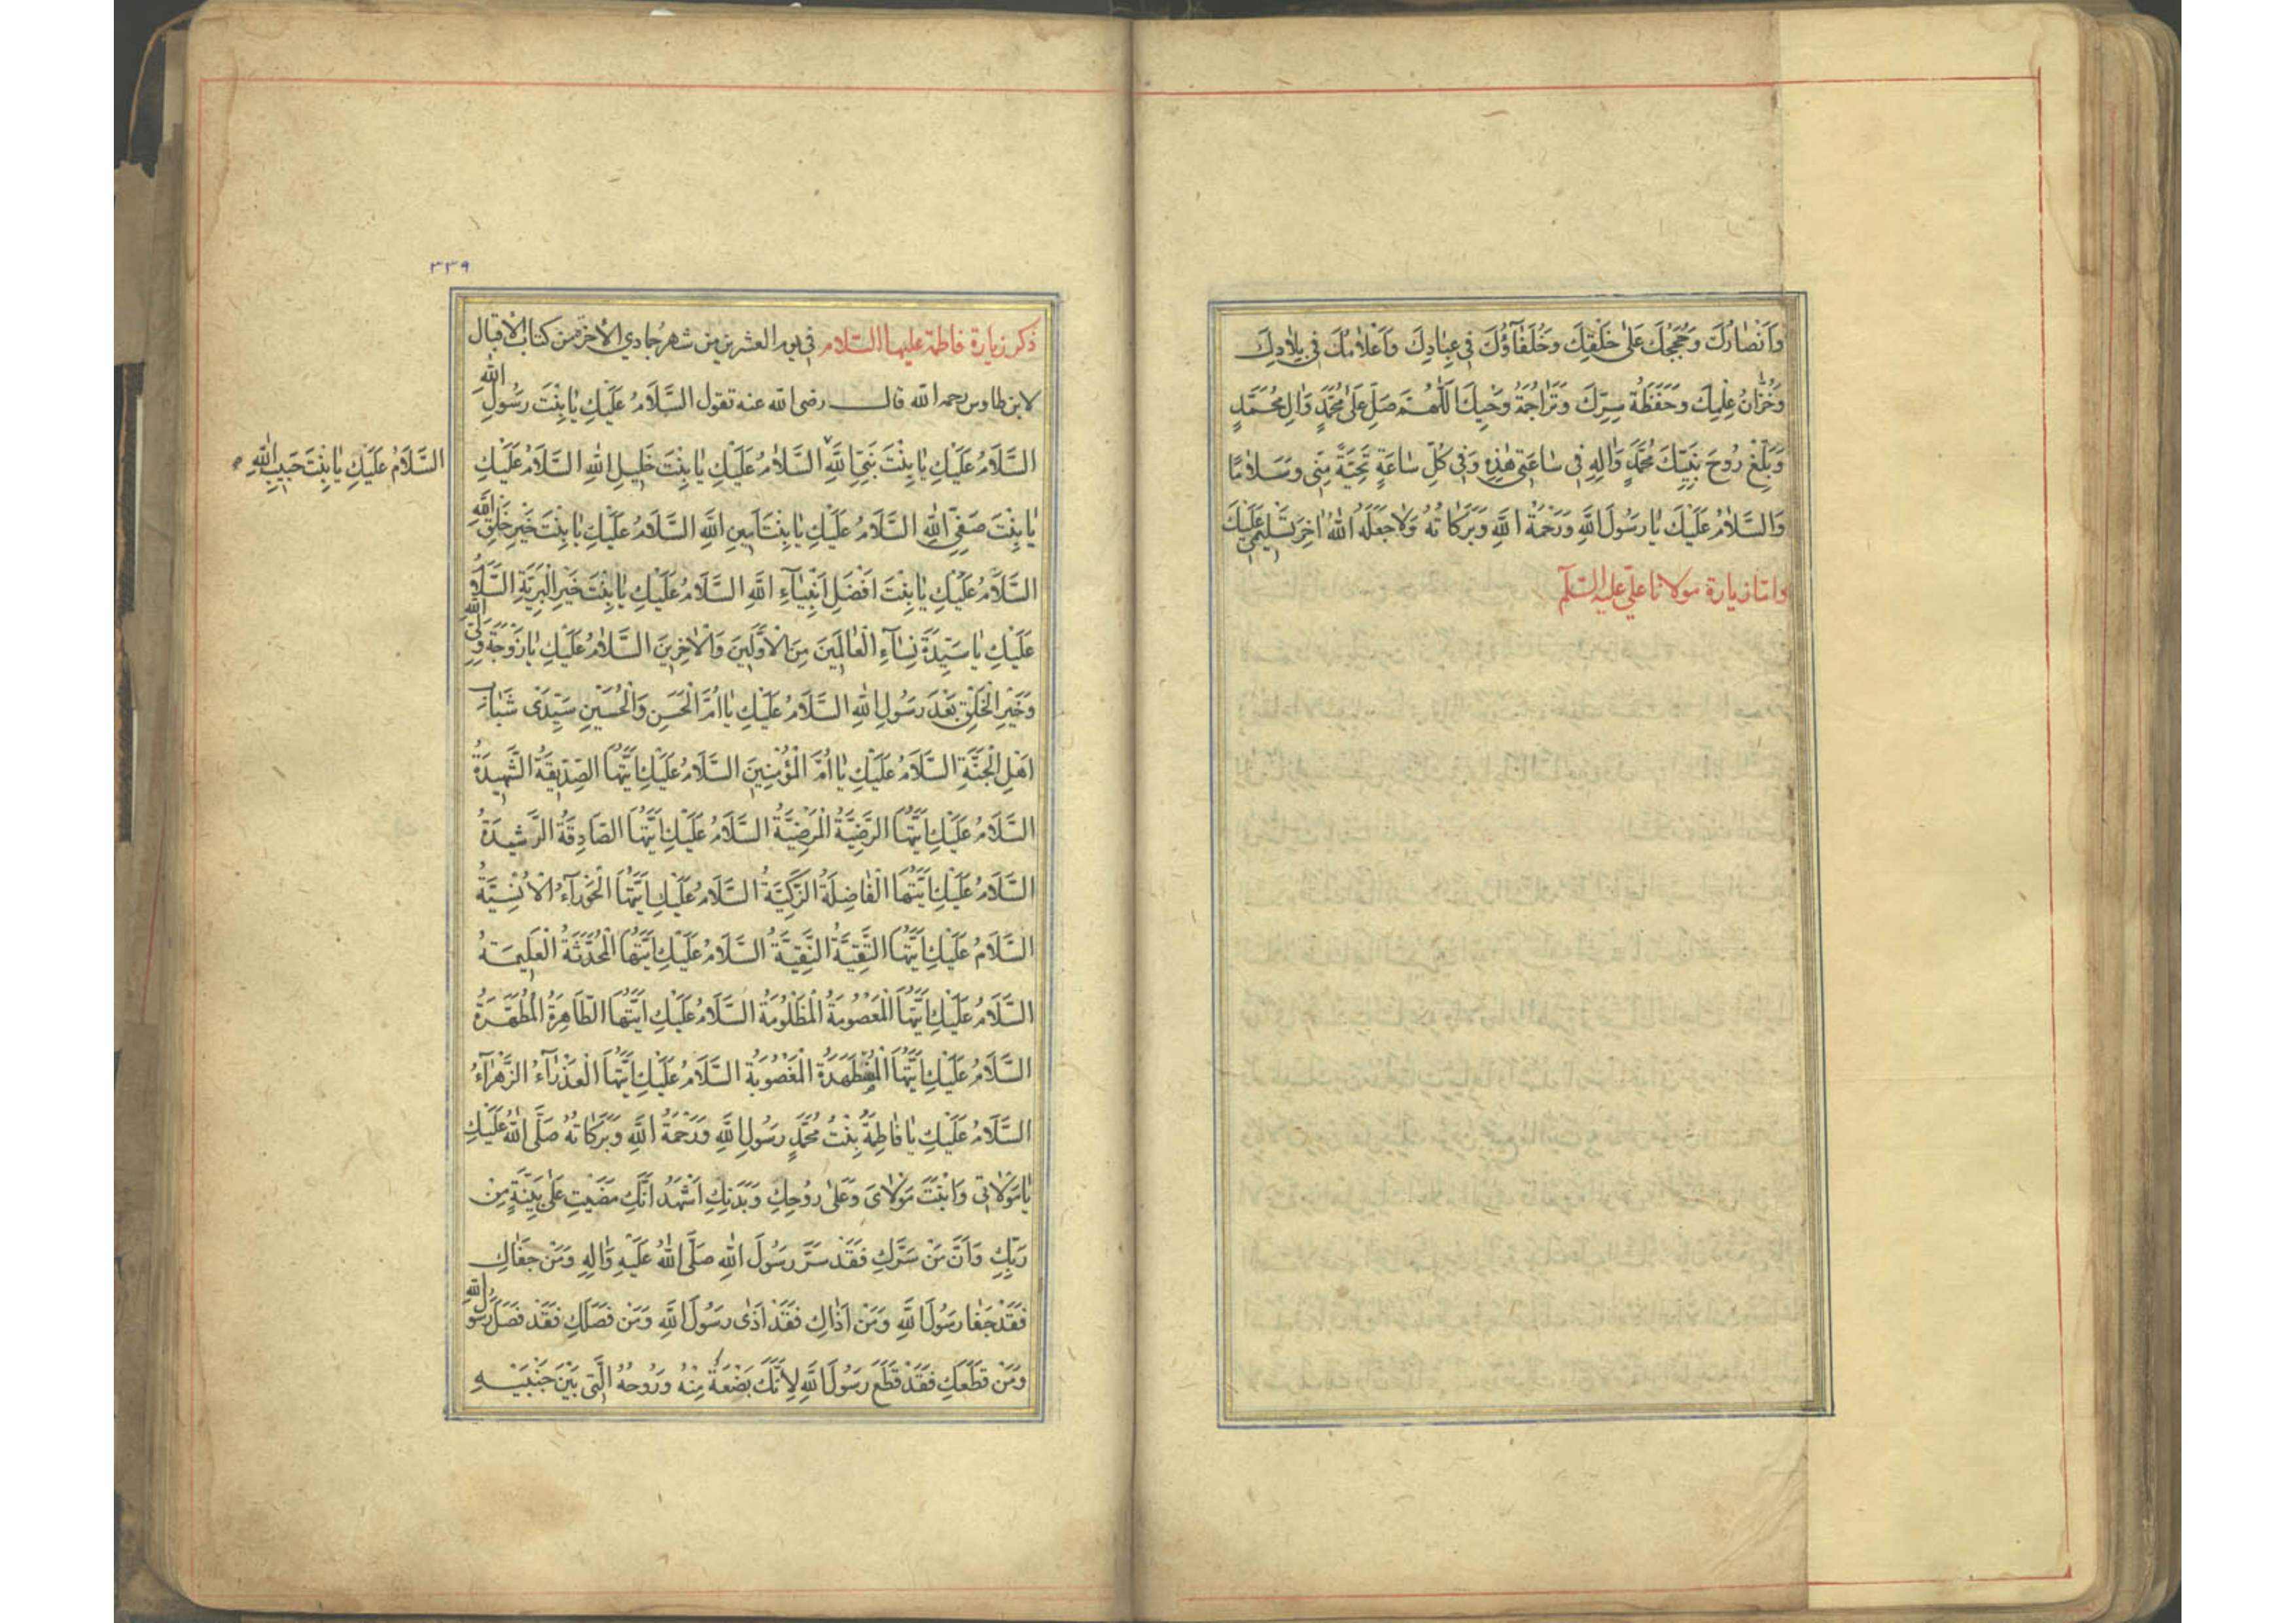 وَاَنْصٰارُكَ وَحُجَجُكَ عَلىٰ خَلْقِكَ وَخُلَفٰآؤُكَ فى عِبٰادِكَ وَاَعْلٰامُكَ فى بِلٰادِكَ
وَخُزّٰانُ عِلْمِكَ وَحَفَظَةُ سِرِّكَ وَتَرٰاجِمَةُ وَحْيِكَ اَللّٰهُمَّ صَلِّ عَلىٰ مُحَمَّدٍ وَاٰلِ مُحَمَّدٍ
وَبَلِّغْ رُوحَ نَبِيِّكَ مُحَمَّدٍ وَاٰلِهِ فى سٰاعَتى هٰذِهِ وَفى كُلِّ سٰاعَةٍ تَحِيَّةً مِنّى وَسَلٰامًا
وَالسَّلٰامُ عَلَيْكَ يٰا رَسُولَ اللهِ وَرَحْمَةُ اللهِ وَبَرَكٰاتُهُ وَلٰا جَعَلَهُ اللهُ اٰخِرَ تَسْليمى عَلَيْكَ
وامّا زيارة مولانا علىّ عليه السّلم
٣٣٩
ذكر زيارة فاطمة عليها السّلام فى يوم العشرين من شهر جمادي الاخرة من كتاب الاقبال
لابن طاوس رحمه الله قال رضى الله عنه تقول السَّلَامُ عَلَيْكِ يٰا بِنْتَ رَسُولِ اللهِ
السَّلَامُ عَلَيْكِ يٰا بِنْتَ نَبِىِّ اللهِ السَّلٰامُ عَلَيْكِ يٰا بِنْتَ خَليلِ اللهِ السَّلَامُ عَلَيْكِ
السَّلَامُ عَلَيْكِ يٰا بِنْتَ حَبيبِ اللهِ
يٰا بِنْتَ صَفِىِّ اللهِ السَّلَامُ عَلَيْكِ يٰا بِنْتَ اَمينِ اللهِ السَّلَامُ عَلَيْكِ يٰا بِنْتَ خَيْرِ خَلْقِ اللهِ
السَّلَامُ عَلَيْكِ يٰا بِنْتَ اَفْضَلِ اَنْبِيٰآءِ اللهِ السَّلَامُ عَلَيْكِ يٰا بِنْتَ خَيْرِ الْبَرِيَّةِ السَّلَامُ
عَلَيْكِ يٰا سَيِّدَةَ نِسٰآءِ الْعٰالَمينَ مِنَ الْاَوَّلينَ وَالْاٰخِرينَ السَّلٰامُ عَلَيْكِ يٰا زَوْجَةَ وَلِىِّ اللهِ
وَخَيْرِ الْخَلْقِ بَعْدَ رَسُولِ اللهِ السَّلَامُ عَلَيْكِ يٰا اُمَّ الْحَسَنِ وَالْحُسَيْنِ سَيِّدَىْ شَبٰابِ
اَهْلِ الْجَنَّةِ السَّلَامُ عَلَيْكِ يٰا اُمَّ الْمُؤْمِنينَ السَّلَامُ عَلَيْكِ اَيَّتُهَا الصِّدّيقَةُ الشَّهيدَةُ
السَّلَامُ عَلَيْكِ اَيَّتُهَا الرَّضِيَّةُ الْمَرْضِيَّةُ السَّلَامُ عَلَيْكِ اَيَّتُهَا الصَّادِقَةُ الرَّشيدَةُ
السَّلَامُ عَلَيْكِ اَيَّتُهَا الْفٰاضِلَةُ الزَّكِيَّةُ السَّلَامُ عَلَيْكِ اَيَّتُهَا الْحَوْرَآءُ الْاِنْسِيَّةُ
السَّلَامُ عَلَيْكِ اَيَّتُهَا التَّقِيَّةُ النَّقِيَّةُ السَّلَامُ عَلَيْكِ اَيَّتُهَا الْمُحَدَّثَةُ الْعَليمَةُ
السَّلَامُ عَلَيْكِ اَيَّتُهَا الْمَعْصُومَةُ الْمَظْلُومَةُ السَّلَامُ عَلَيْكِ اَيَّتُهَا الطَّاهِرَةُ الْمُطَهَّرَةُ
السَّلَامُ عَلَيْكِ اَيَّتُهَا الْمُضْطَهَدَةُ الْمَغْصُوبَةُ السَّلَامُ عَلَيْكِ اَيَّتُهَا الْعَذْرٰآءُ الزَّهْرٰآءُ
السَّلَامُ عَلَيْكِ يٰا فٰاطِمَةُ بِنْتُ مُحَمَّدٍ رَسُولِ اللهِ وَرَحْمَةُ اللهِ وَبَرَكٰاتُهُ صَلَّى اللهُ عَلَيْكِ
يٰا مَوْلٰاتى وَابْنَتَ مَوْلٰاىَ وَعَلىٰ رُوحِكِ وَبَدَنِكِ اَشْهَدُ اَنَّكِ مَضَيْتِ عَلىٰ بَيِّنَةٍ مِنْ
رَبِّكِ وَاَنَّ مَنْ سَرَّكِ فَقَدْ سَرَّ رَسُولَ اللهِ صَلَّى اللهُ عَلَيْهِ وَاٰلِهِ وَمَنْ جَفٰاكِ
فَقَدْ جَفٰا رَسُولَ اللهِ وَمَنْ اٰذٰاكِ فَقَدْ اٰذٰى رَسُولَ اللهِ وَمَنْ فَصَلَكِ فَقَدْ فَصَلَ رَسُولَ اللهِ
وَمَنْ قَطَعَكِ فَقَدْ قَطَعَ رَسُولَ اللهِ لِاَنَّكِ بَضْعَةٌ مِنْهُ وَرُوحُهُ الَّتى بَيْنَ جَنْبَيْهِ